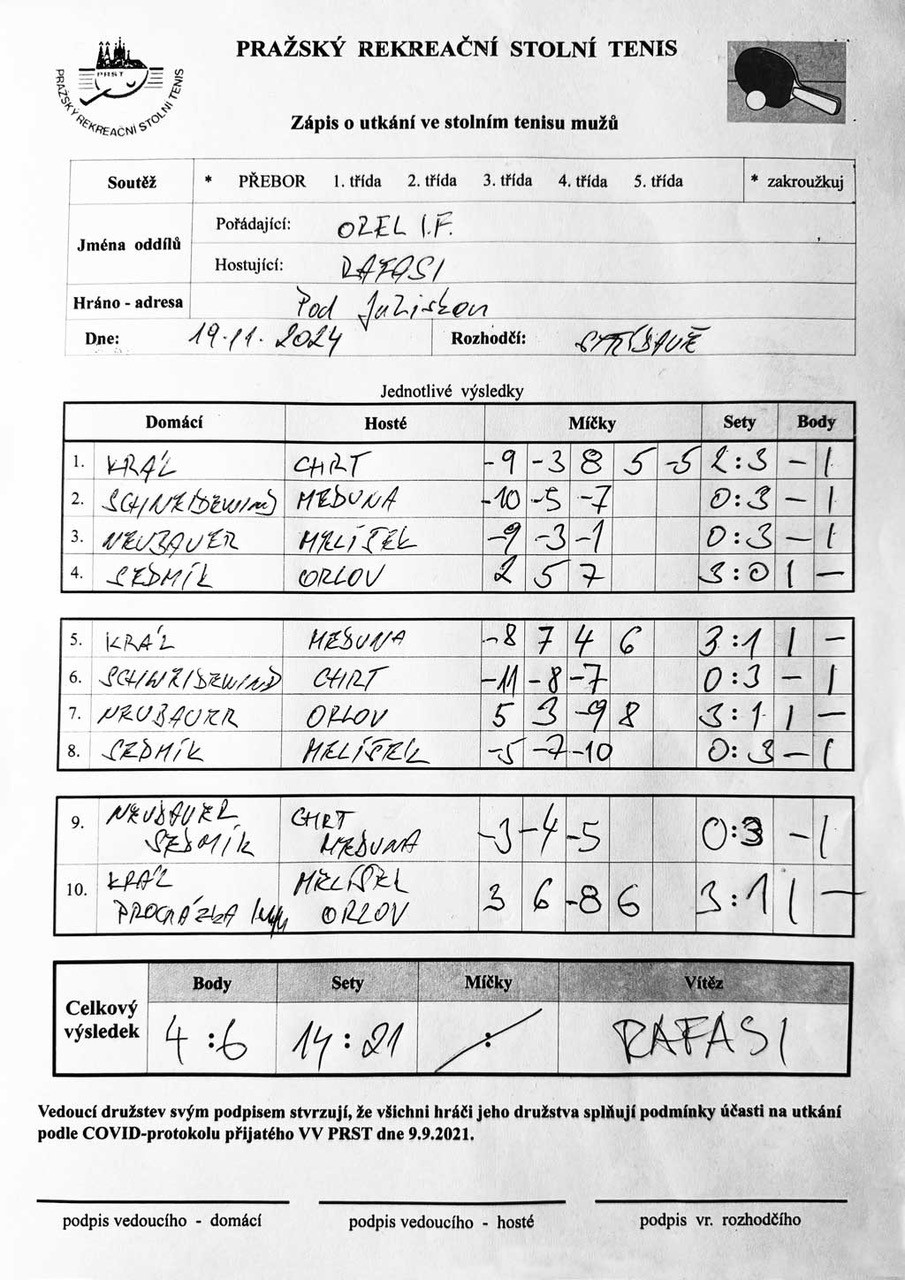 PRAŽSKÝ REKREAČNÍ STOLNÍ TENIS
PRST
PRAŽSKÝ REKREAČNÍ STOLNÍ TENIS
Zápis o utkání ve stolním tenisu mužů
Soutěž * PŘEBOR 1. třída 2. třída 3. třída 4. třída 5. třída * zakroužkuj
Jména oddílů
Pořádající: OREL I.F.
Hostující: RAFASI
Hráno - adresa Pod Juliskou
Dne: 19.11.2024 Rozhodčí:
Jednotlivé výsledky
Domácí Hosté Míčky Sety Body
1. KRÁL CHRT -9 -3 8 5 -5 2:3 - 1
2. SCHNEIDEWIND MEDUNA -10 -5 -7 0:3 - 1
3. NEUBAUER MELÍŠEK -9 -3 -1 0:3 - 1
4. SEDMÍK ORLOV 2 5 7 3:0 1 -
5. KRÁL MEDUNA -8 7 4 6 3:1 1 -
6. SCHNEIDEWIND CHRT -11 -8 -7 0:3 - 1
7. NEUBAUER ORLOV 5 3 -9 8 3:1 1 -
8. SEDMÍK MELÍŠEK -5 -7 -10 0:3 - 1
9. NEUBAUER CHRT
SEDMÍK MEDUNA -3 -4 -5 0:3 - 1
10. KRÁL MELÍŠEK
PROCHÁZKA ORLOV 3 6 -8 6 3:1 1 -
Body Sety Míčky Vítěz
Celkový výsledek 4:6 14:21 : RAFASI
Vedoucí družstev svým podpisem stvrzují, že všichni hráči jeho družstva splňují podmínky účasti na utkání
podle COVID-protokolu přijatého VV PRST dne 9.9.2021.
podpis vedoucího - domácí podpis vedoucího - hosté podpis vr. rozhodčího